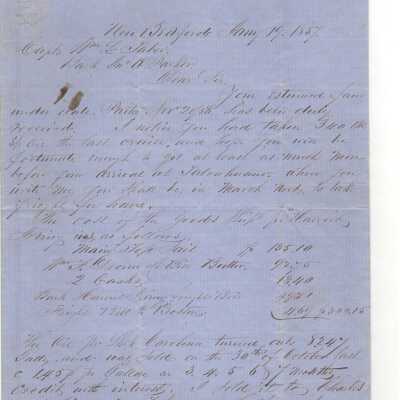 New Bedford Jany 19, 1857
Capt. Wm. L. Taber
Bark Jno A Parker
Dear Sir,
Your esteemed favor
under date Paita Nov 20th has been duly
received. I notice you had taken 340 Bbls
Sp Oil the last cruise, and hope you will be
fortunate enough to get at least as much more
before you arrival at Talcahuano where you
write me you shall be in March next, to take
you have.
The cost of the Goods Ship pr Harvest
being as follows,
Main Top Sail $ 135.10
Bbls Butter 92.75
2 Casks 12.40
Bark
Freight Bill 4.69
The Oil pr Ship Carolina turned out 324
Galls, and was sold on the 30th of October last
@ 145¢ pr Gallon on 3, 4, 5, 6 months
credit with interest, I sold it to Charles